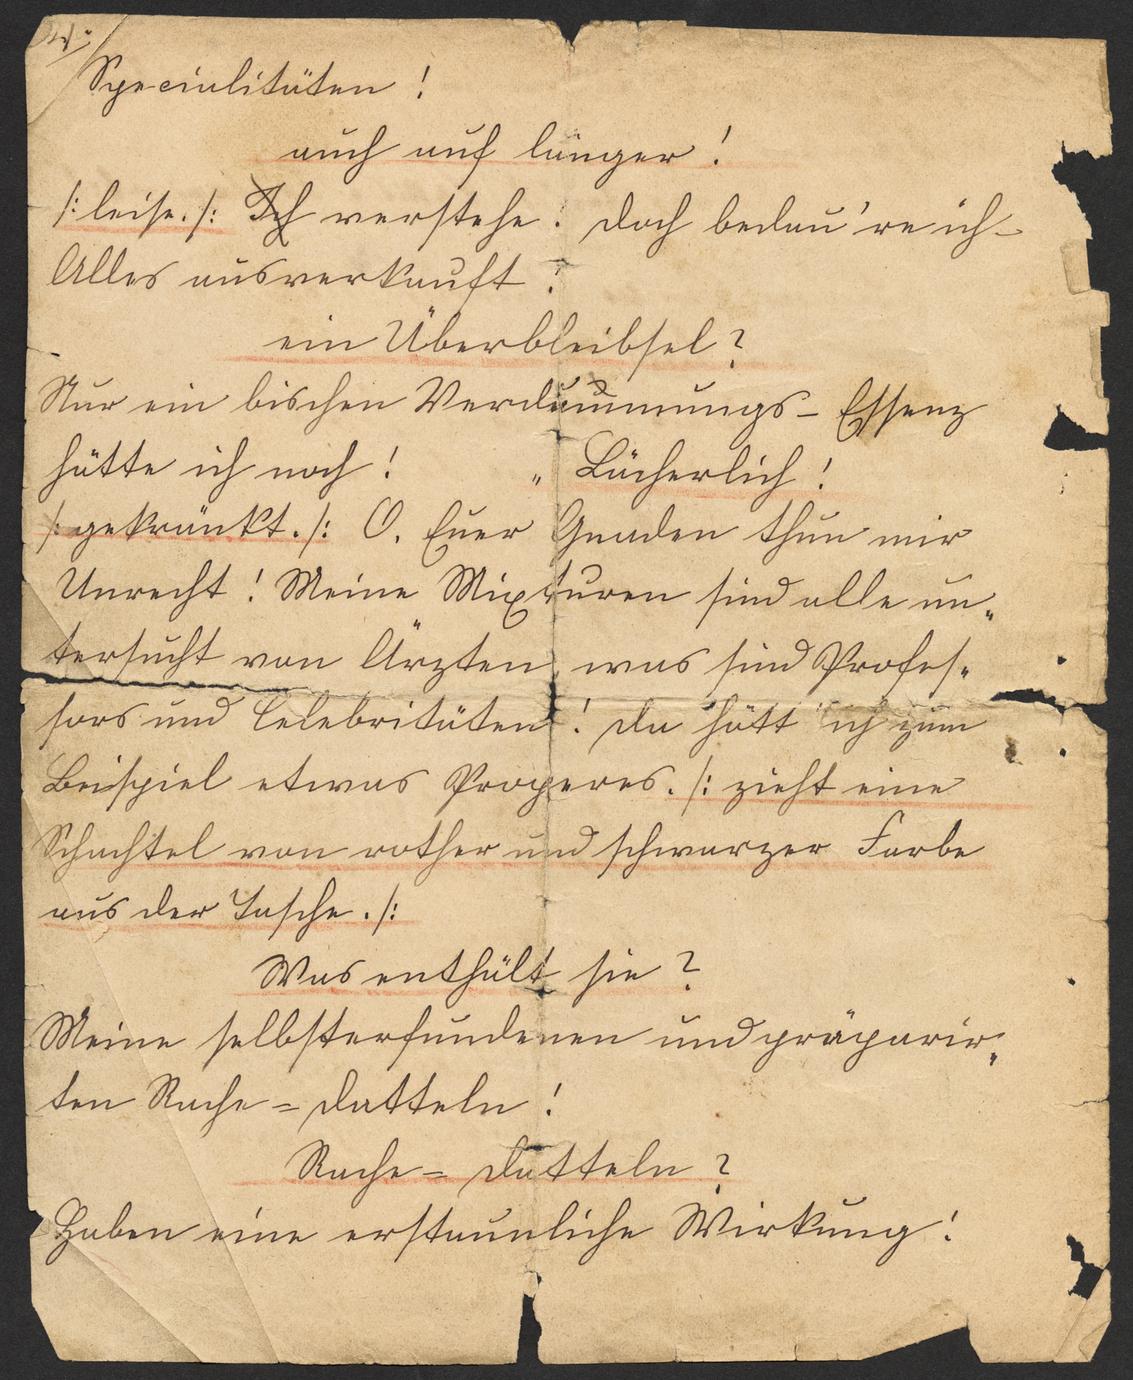 4.
Specialitäten !
auch auf länger !
/: leise. /: Ich verstehe. doch bedau're ich –
Alles ausverkauft !
ein Überbleibsel ?
Nur ein bischen Verdummungs – Essenz
hätte ich noch !     „ Lächerlich !
/: gekränkt. /: O. Euer Gnaden thun mir
Unrecht ! Meine Mixturen sind alle un„
tersucht von Ärzten, was sind Profes„
sors und Celebritäten ! da hätt ich zum
Beispiel etwas Properes. /: zieht eine
Schachtel von rother und schwarzer Farbe
aus der Tasche. /:
Was enthält sie ?
Meine selbsterfundenen und präparir„
ten Rache = datteln !
Rache = datteln ?
Haben eine erstaunliche Wirkung !